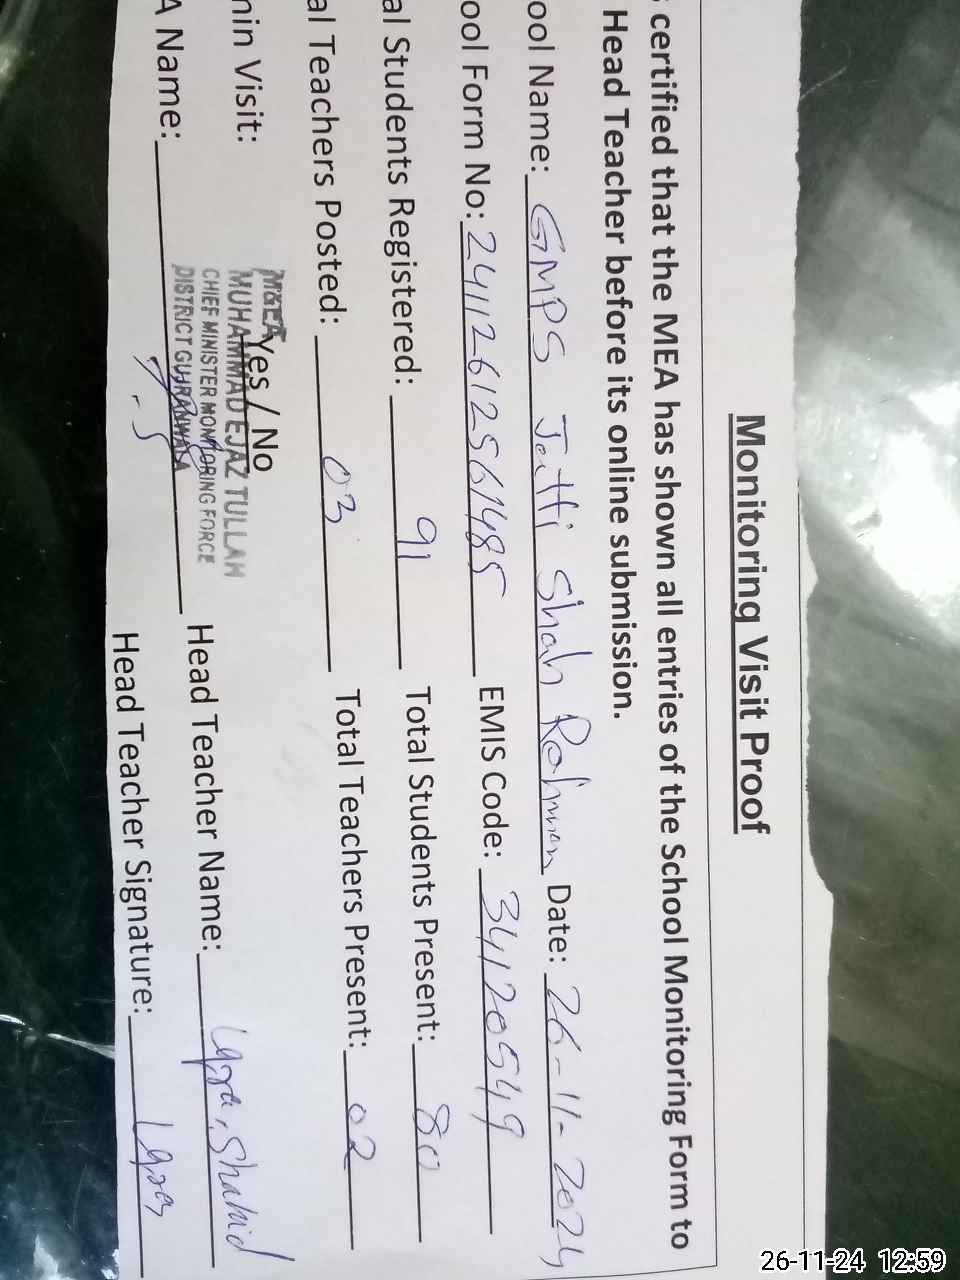 Monitoring Visit Proof
certified that the MEA has shown all entries of the School Monitoring Form to
Head Teacher before its online submission.
ool Name: GMPS Jatti Shah Rehman Date: 26-11-2024
ool Form No: 24112612561485 EMIS Code: 34120549
al Students Registered: 91 Total Students Present: 80
al Teachers Posted: 03 Total Teachers Present: 02
min Visit: Yes / No
M&EA
MUHAMMAD EJAZ TULLAH
CHIEF MINISTER MONITORING FORCE
DISTRICT GUJRANWALA
A Name: Head Teacher Name: Iqra Shahid
Head Teacher Signature: Iqra
26-11-24 12:59